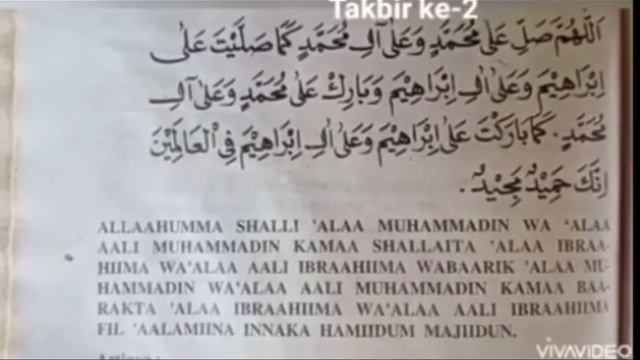 Takbir ke-2
اَللّٰهُمَّ صَلِّ عَلَى مُحَمَّدٍ وَعَلَى آلِ مُحَمَّدٍ كَمَا صَلَّيْتَ عَلَى
اِبْرَاهِيْمَ وَعَلَى اٰلِ اِبْرَاهِيْمَ وَبَارِكْ عَلَى مُحَمَّدٍ وَعَلَى آلِ
مُحَمَّدٍ. كَمَا بَارَكْتَ عَلَى اِبْرَاهِيْمَ وَعَلَى اٰلِ اِبْرَاهِيْمَ فِى الْعَالَمِيْنَ
اِنَّكَ حَمِيْدٌ مَجِيْدٌ.
ALLAAHUMMA SHALLI 'ALAA MUHAMMADIN WA 'ALAA
AALI MUHAMMADIN KAMAA SHALLAITA 'ALAA IBRAA-
HIIMA WA'ALAA AALI IBRAAHIIMA WABAARIK 'ALAA MU-
HAMMADIN WA'ALAA AALI MUHAMMADIN KAMAA BAA-
RAKTA 'ALAA IBRAAHIIMA WA'ALAA AALI IBRAAHIIMA
FIL 'AALAMIINA INNAKA HAMIIDUM MAJIIDUN.
VIVAVIDEO